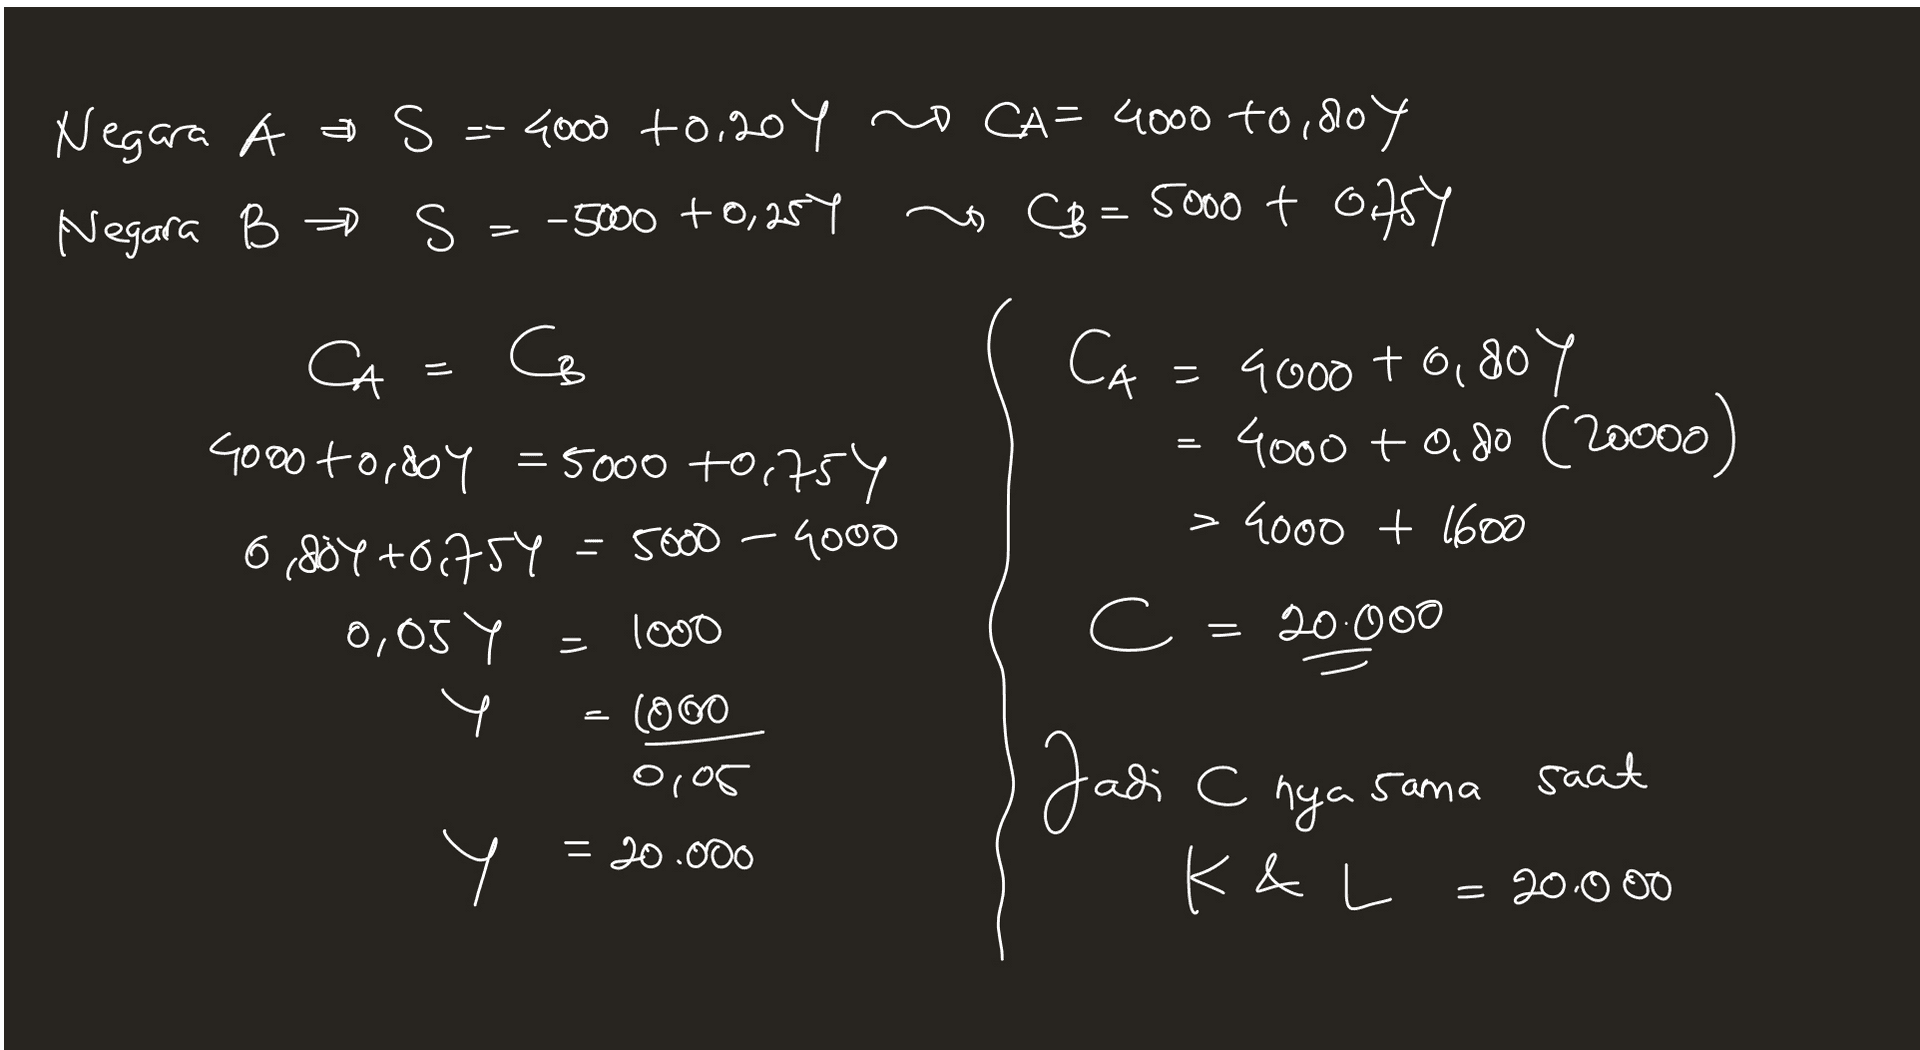 Negara A ⇒ S = -4000 + 0,20Y ⇝ CA = 4000 + 0,80Y
Negara B ⇒ S = -5000 + 0,25Y ⇝ CB = 5000 + 0,75Y
CA = CB
4000 + 0,80Y = 5000 + 0,75Y
0,80Y + 0,75Y = 5000 - 4000
0,05Y = 1000
Y = 1000
0,05
Y = 20.000
CA = 4000 + 0,80Y
= 4000 + 0,80 (20000)
= 4000 + 1600
C = 20.000
Jadi C nya sama saat
K & L = 20.000